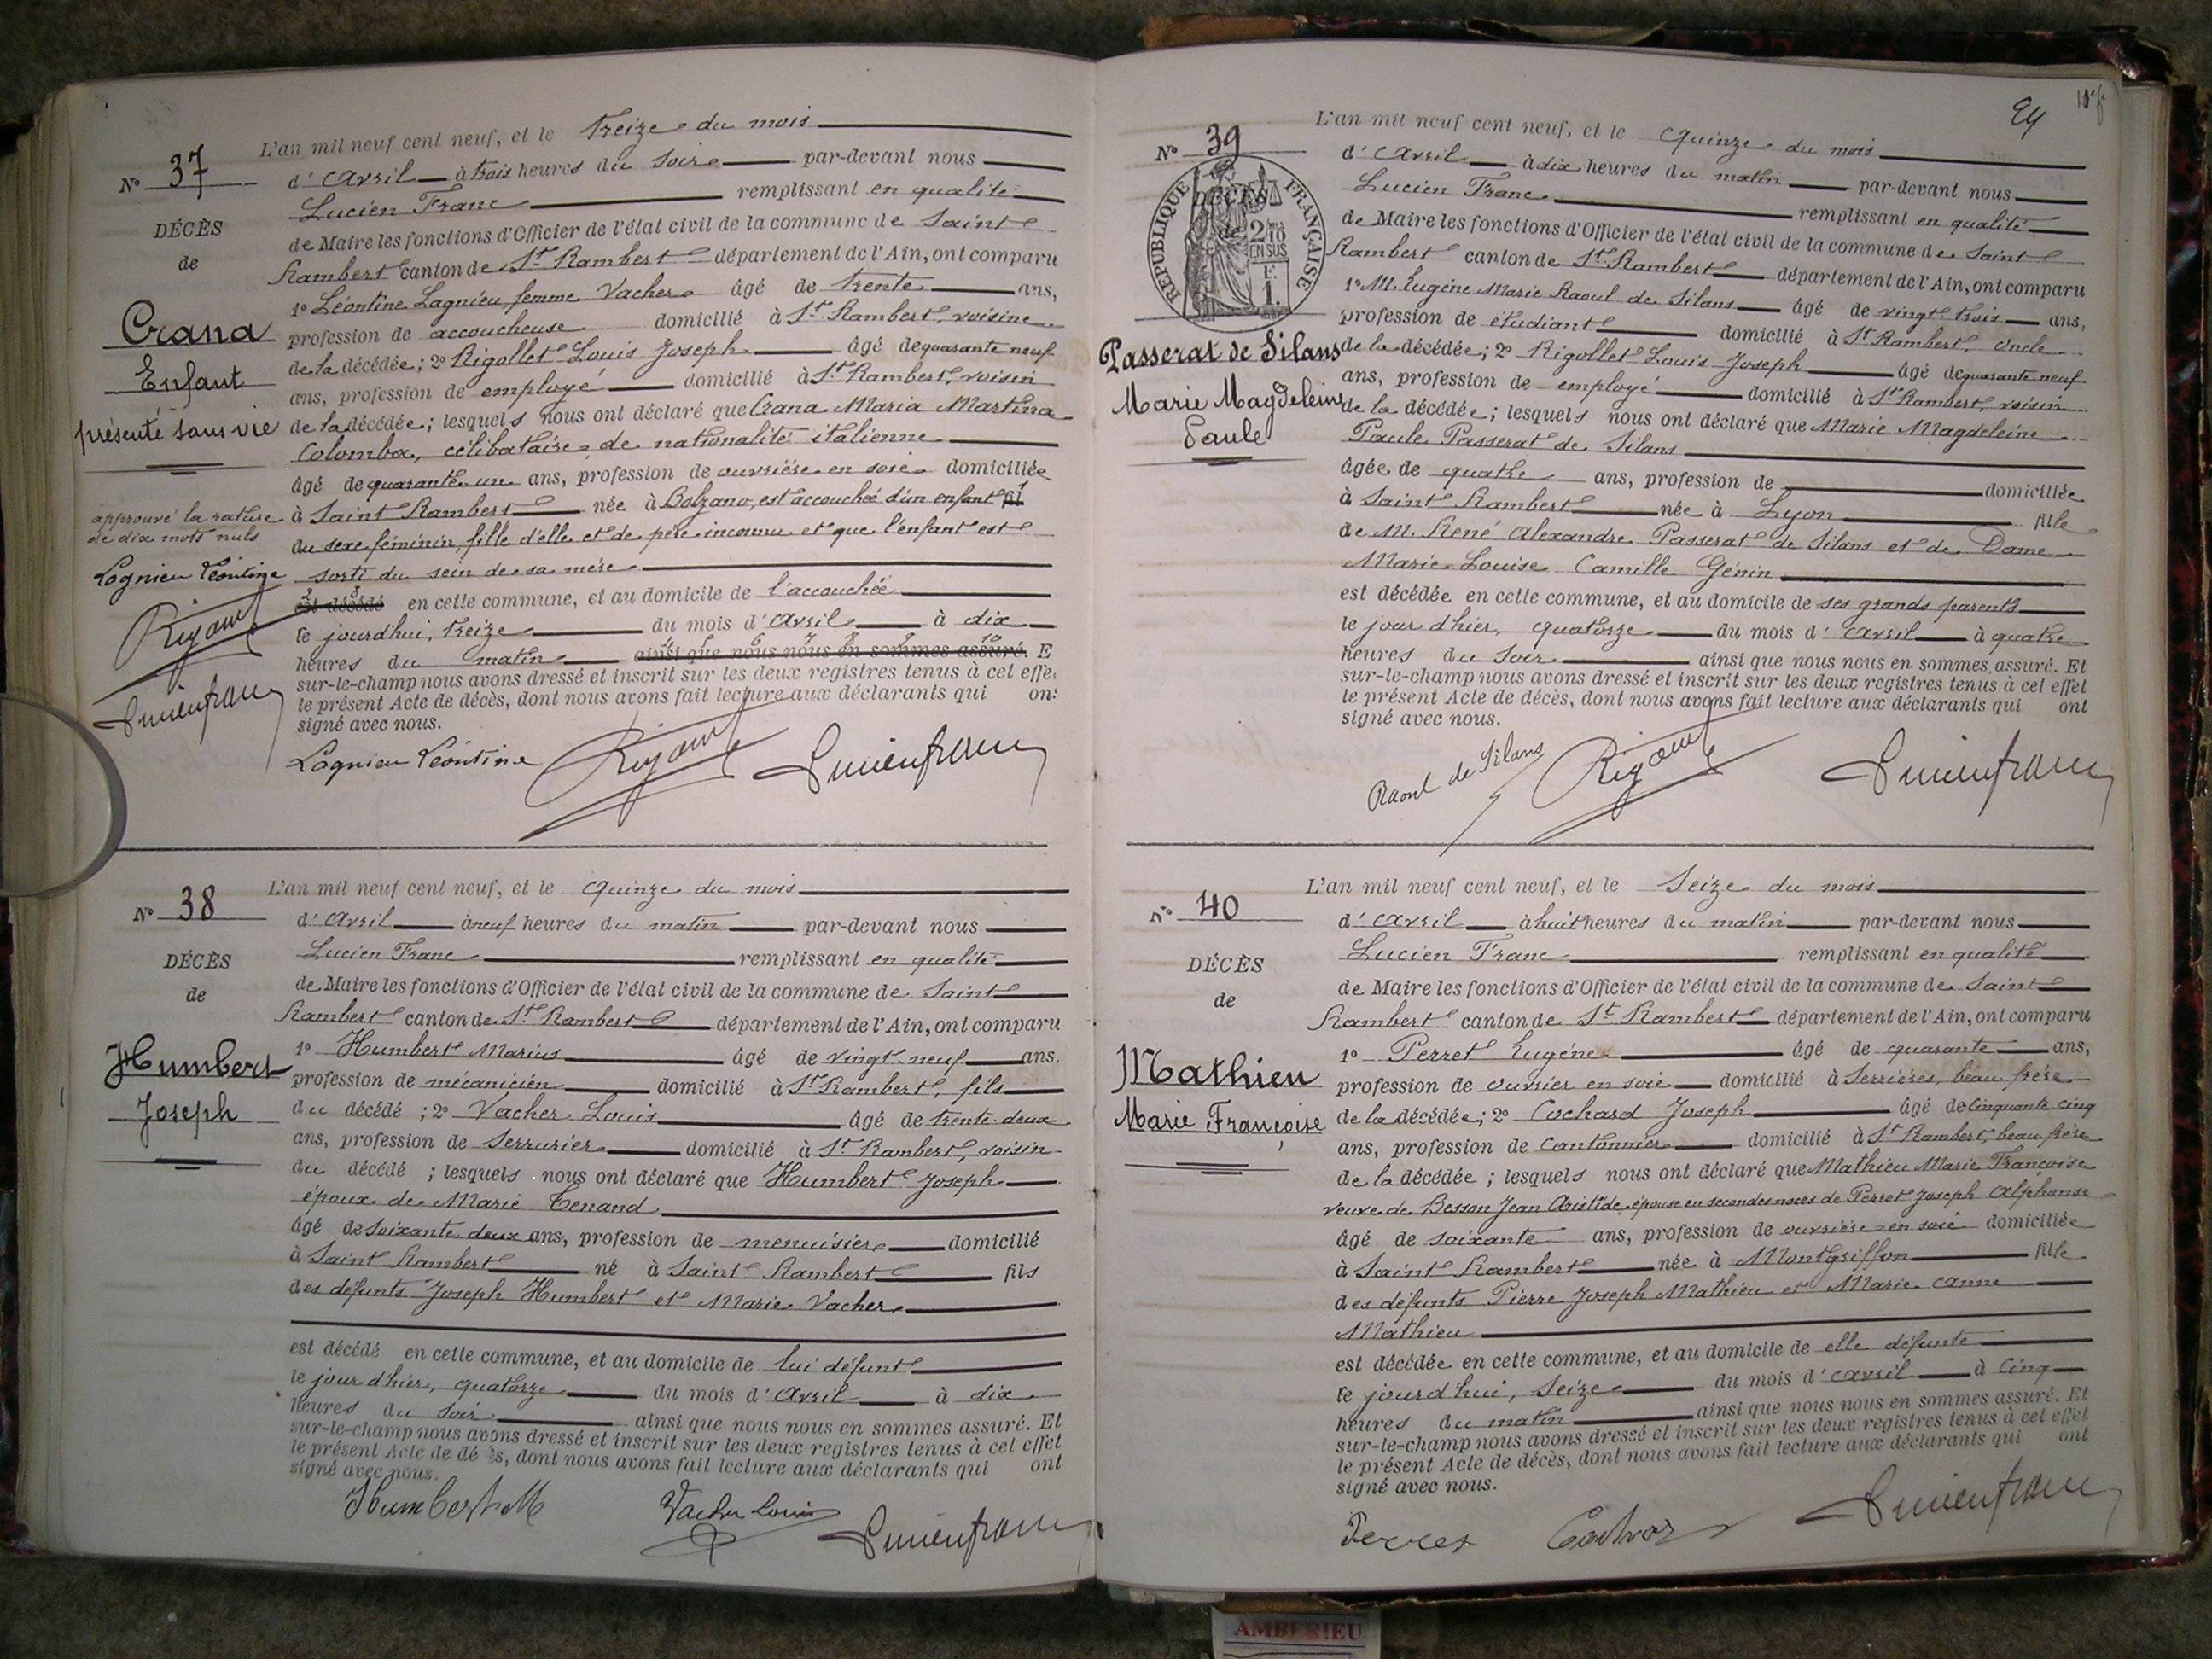 N° 37
DÉCÈS
de
Crana
Enfant
présenté sans vie
approuvé la rature
de dix mots nuls
Lagnieu Léontine
L'an mil neuf cent neuf, et le treize du mois
d'avril à trois heures du soir par-devant nous
Lucien Franc remplissant en qualité
de Maire les fonctions d'Officier de l'état civil de la commune de Saint
Rambert canton de St Rambert département de l'Ain, ont comparu
1° Léontine Lagnieu femme Vacher âgé de trente ans,
profession de accoucheuse domicilié à St Rambert, voisine
de la décédée; 2° Rigollet Louis Joseph âgé de quarante neuf
ans, profession de employé domicilié à St Rambert, voisin
de la décédée; lesquels nous ont déclaré que Crana Maria Martina
Colomba, célibataire de nationalité italienne
âgé de quarante un ans, profession de ouvrière en soie domiciliée
à Saint Rambert née à Bolzano, est accouchée d'un enfant fil 1
du sexe féminin, fille d'elle et de père inconnu et que l'enfant est
sorti du sein de sa mère
2 3
est décédé en cette commune, et au domicile de l'accouchée
le jourd'hui, treize du mois d'avril à dix
4 5 6 7 8 9 10
heures du matin ainsi que nous nous en sommes assuré. E
sur-le-champ nous avons dressé et inscrit sur les deux registres tenus à cet effe
le présent Acte de décès, dont nous avons fait lecture aux déclarants qui ont
signé avec nous.
Lagnieu Léontine
N° 38
DÉCÈS
de
Humbert
Joseph
L'an mil neuf cent neuf, et le quinze du mois
d'avril à neuf heures du matin par-devant nous
Lucien Franc remplissant en qualité
de Maire les fonctions d'Officier de l'état civil de la commune de Saint
Rambert canton de St Rambert département de l'Ain, ont comparu
1° Humbert Marius âgé de vingt-neuf ans.
profession de mécanicien domicilié à St Rambert, fils
du décédé; 2° Vacher Louis âgé de trente-deux
ans, profession de serrurier domicilié à St Rambert, voisin
du décédé; lesquels nous ont déclaré que Humbert Joseph
époux de Marie Tenand
âgé de soixante deux ans, profession de menuisier domicilié
à Saint Rambert né à Saint Rambert fils
des défunts Joseph Humbert et Marie Vacher
est décédé en cette commune, et au domicile de lui défunt
le jour d'hier, quatorze du mois d'avril à dix
heures du soir ainsi que nous nous en sommes assuré. Et
sur-le-champ nous avons dressé et inscrit sur les deux registres tenus à cet effet
le présent Acte de dé ès, dont nous avons fait lecture aux déclarants qui ont
signé avec nous.
Humbert M
Vacher Louis
Lucien franc
24
N° 39
RÉPUBLIQUE FRANÇAISE
DÉCÈS
de
2/10
EN SUS
F.
1.
Passerat de Silans
Marie Magdeleine
Paule
L'an mil neuf cent neuf, et le quinze du mois
d'avril à dix heures du matin par-devant nous
Lucien Franc remplissant en qualité
de Maire les fonctions d'Officier de l'état civil de la commune de Saint
Rambert canton de St Rambert département de l'Ain, ont comparu
1° M. Eugène Marie Raoul de Silans âgé de vingt trois ans,
profession de étudiant domicilié à St Rambert, oncle
de la décédée; 2° Rigollet Louis Joseph âgé de quarante neuf
ans, profession de employé domicilié à St Rambert, voisin
de la décédée; lesquels nous ont déclaré que Marie Magdeleine
Paule Passerat de Silans
âgée de quatre ans, profession de domiciliée
à Saint Rambert née à Lyon fille
de M. René Alexandre Passerat de Silans et de Dame
Marie Louise Camille Génin
est décédée en cette commune, et au domicile de ses grands parents
le jour d'hier, quatorze du mois d'avril à quatre
heures du soir ainsi que nous nous en sommes assuré. Et
sur-le-champ nous avons dressé et inscrit sur les deux registres tenus à cet effet
le présent Acte de décès, dont nous avons fait lecture aux déclarants qui ont
signé avec nous.
Raoul de Silans
Lucien franc
N° 40
DÉCÈS
de
Mathieu
Marie Françoise
L'an mil neuf cent neuf, et le seize du mois
d'avril à huit heures du matin par-devant nous
Lucien Franc remplissant en qualité
de Maire les fonctions d'Officier de l'état civil de la commune de Saint
Rambert canton de St Rambert département de l'Ain, ont comparu
1° Perret Eugène âgé de quarante ans,
profession de ouvrier en soie domicilié à Serrières, beau frère
de la décédée; 2° Cochard Joseph âgé de cinquante cinq
ans, profession de cantonnier domicilié à St Rambert, beau frère
de la décédée; lesquels nous ont déclaré que Mathieu Marie Françoise
veuve de Besson Jean Aristide, épouse en secondes noces de Perret Joseph Alphonse
âgé de soixante ans, profession de ouvrière en soie domiciliée
à Saint Rambert née à Montgriffon fille
des défunts Pierre Joseph Mathieu et Marie Anne
Mathieu
est décédée en cette commune, et au domicile de elle défunte
le jourd'hui, seize du mois d'avril à cinq
heures du matin ainsi que nous nous en sommes assuré. Et
sur-le-champ nous avons dressé et inscrit sur les deux registres tenus à cet effet
le présent Acte de décès, dont nous avons fait lecture aux déclarants qui ont
signé avec nous.
Perret
Lucien franc
AMBERIEU